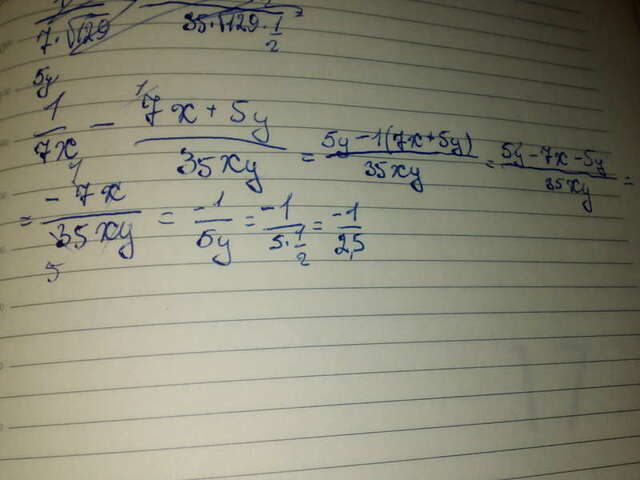 7·√129 35·√129·1/2
5y 1
1/7x − (7x + 5y)/35xy = (5y − 1(7x+5y))/35xy = (5y − 7x − 5y)/35xy =
= −7x/35xy = −1/5y = −1/(5·1/2) = −1/2,5
5